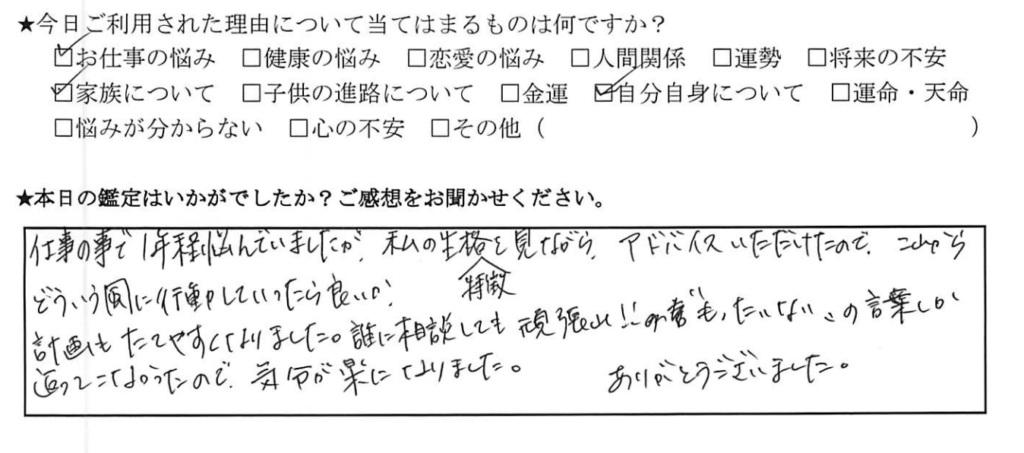 ★今日ご利用された理由について当てはまるものは何ですか？
☑お仕事の悩み　□健康の悩み　□恋愛の悩み　□人間関係　□運勢　□将来の不安
☑家族について　□子供の進路について　□金運　☑自分自身について　□運命・天命
□悩みが分からない　□心の不安　□その他（　　　）
★本日の鑑定はいかがでしたか？ご感想をお聞かせください。
仕事の事で1年程悩んでいましたが、私の性格を見ながら、アドバイスいただけたので、これから
特徴
どういう風に行動していったら良いか、
計画もたてやすくなりました。誰に相談しても頑張れ!!の"もったいない"の言葉しか
返ってこなかったので、気分が楽になりました。　ありがとうございました。